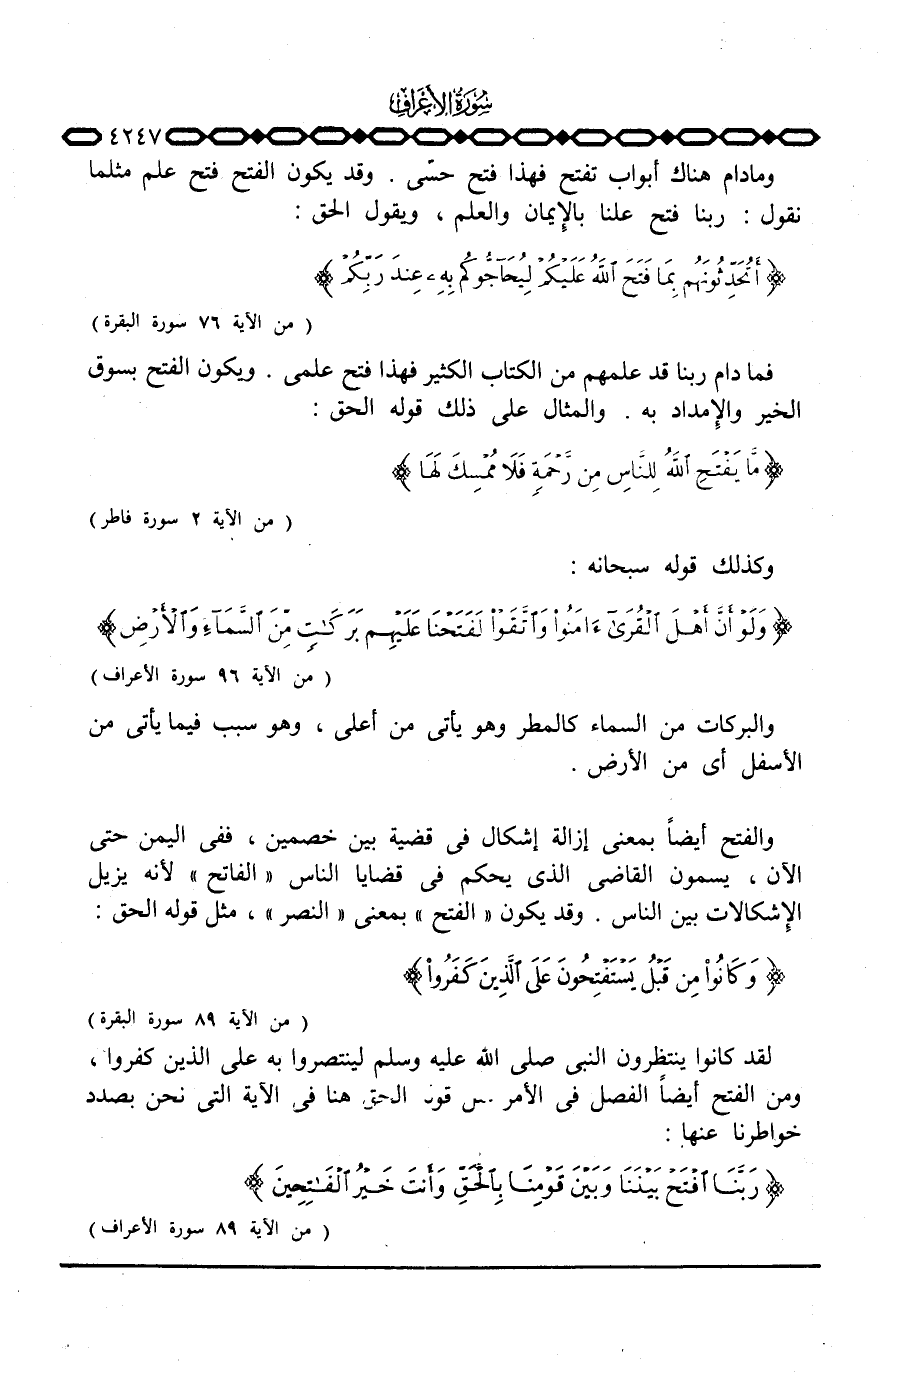 سُورَةُ الأَعْرَافِ
٤٢٤٧
ومادام هناك أبواب تفتح فهذا فتح حسّى . وقد يكون الفتح فتح علم مثلما
نقول : ربنا فتح علنا بالإيمان والعلم ، ويقول الحق :
﴿ أَتُحَدِّثُونَهُم بِمَا فَتَحَ ٱللَّهُ عَلَيْكُمْ لِيُحَآجُّوكُم بِهِۦ عِندَ رَبِّكُمْ ﴾
( من الآية ٧٦ سورة البقرة )
فما دام ربنا قد علمهم من الكتاب الكثير فهذا فتح علمى . ويكون الفتح بسوق
الخير والإمداد به . والمثال على ذلك قوله الحق :
﴿ مَّا يَفْتَحِ ٱللَّهُ لِلنَّاسِ مِن رَّحْمَةٍ فَلَا مُمْسِكَ لَهَا ﴾
( من الآية ٢ سورة فاطر )
وكذلك قوله سبحانه :
﴿ وَلَوْ أَنَّ أَهْلَ ٱلْقُرَىٰٓ ءَامَنُوا۟ وَٱتَّقَوْا۟ لَفَتَحْنَا عَلَيْهِم بَرَكَـٰتٍ مِّنَ ٱلسَّمَآءِ وَٱلْأَرْضِ ﴾
( من الآية ٩٦ سورة الأعراف )
والبركات من السماء كالمطر وهو يأتى من أعلى ، وهو سبب فيما يأتى من
الأسفل أى من الأرض .
والفتح أيضاً بمعنى إزالة إشكال فى قضية بين خصمين ، ففى اليمن حتى
الآن ، يسمون القاضى الذى يحكم فى قضايا الناس « الفاتح » لأنه يزيل
الإشكالات بين الناس . وقد يكون « الفتح » بمعنى « النصر » ، مثل قوله الحق :
﴿ وَكَانُوا۟ مِن قَبْلُ يَسْتَفْتِحُونَ عَلَى ٱلَّذِينَ كَفَرُوا۟ ﴾
( من الآية ٨٩ سورة البقرة )
لقد كانوا ينتظرون النبى صلى الله عليه وسلم لينتصروا به على الذين كفروا ،
ومن الفتح أيضاً الفصل فى الأمر الحق هنا فى الآية التى نحن بصدد
خواطرنا عنها :
﴿ رَبَّنَا ٱفْتَحْ بَيْنَنَا وَبَيْنَ قَوْمِنَا بِٱلْحَقِّ وَأَنتَ خَيْرُ ٱلْفَـٰتِحِينَ ﴾
( من الآية ٨٩ سورة الأعراف )